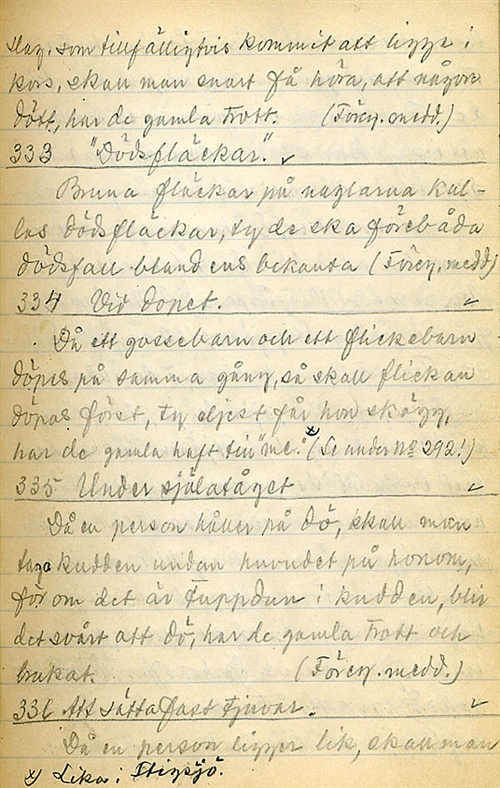 slag. som tillfälligtvis kommit att ligga i
kors, skall man snart få höra, att någon
dött, har de gamla trott. (Föreg. medd.)
333 "Dödsfläckar."
Bruna fläckar på naglarna kal-
las dödsfläckar, ty de ska förebåda
dödsfall bland ens bekanta (Föreg. medd)
334 Vid dopet.
Då ett gossebarn och ett flickebarn
döpes på samma gång, så skall flickan
döpas först, ty eljest får hon skägg,
har de gamla haft till "me." x) (Se under No 292!)
335 Under själatåget
Då en person håller på dö, skall man
taga kudden undan huvudet på honom,
för om det är tuppdun i kudden, blir
det svårt att dö, har de gamla trott och
brukat. (Föreg. medd.)
336 Att sätta fast tjuvar.
Då en person ligger lik, skall man
x) Lika i Stigsjö.